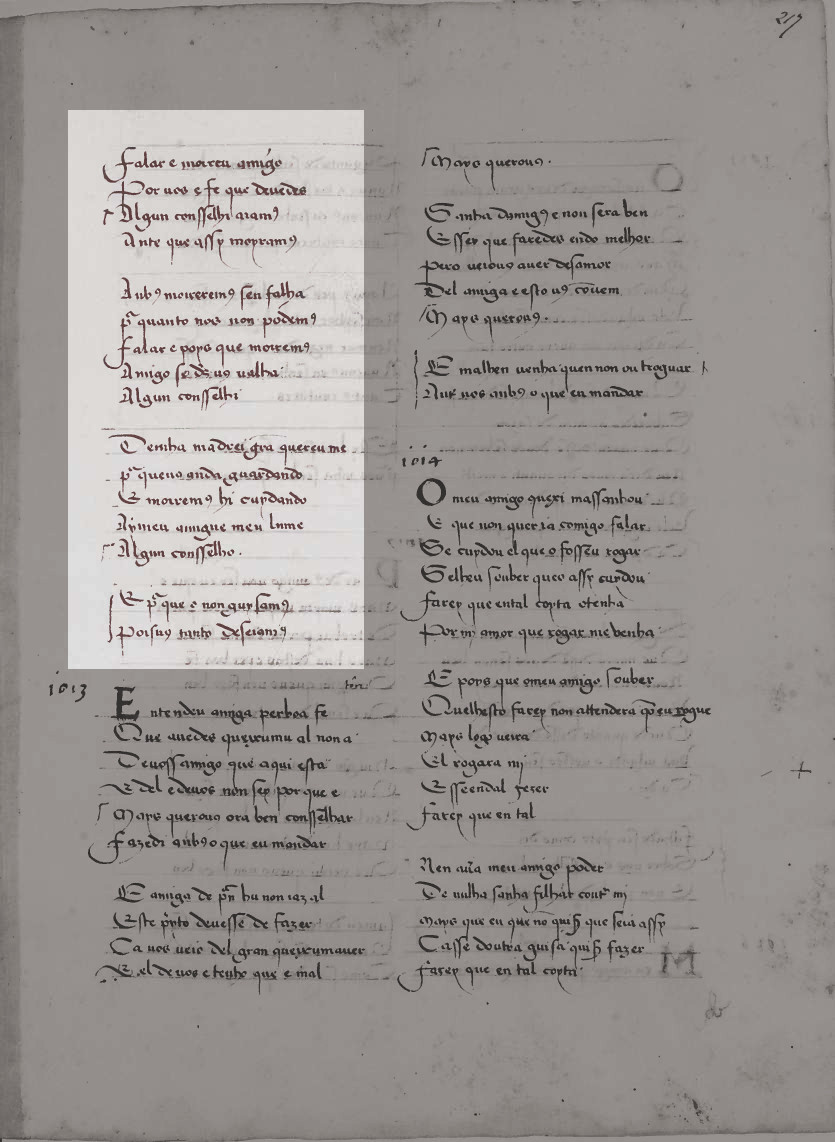 217
Falar e moireu amigo
Por uos e fe que deuedes
Algun consselhi aiamꝰ
Ante que assy moyramꝰ
Anbꝰ moireremꝰ sen falha
p̃ quanto nos non podemꝰ
Falar e poys que moiremꝰ
Amigo se ds̃ uꝰ ualha
Algun consselhi
Tenha madrei gra quereume
p̃ queuꝰ anda guardando
E moiremꝰ hi cuydando
Ay meu amigue meu lume
Algun consselho.
E p̃ que o non guysamꝰ
Poisuꝰ tanto deseiamꝰ
1013
E ntendeu amiga perboa fe
Que auedes queixumu al non a
Deuossamigo que aqui esta
E del e deuos non sey por que e
Mays querouꝰ ora ben consselhar
Fazedi anbꝰ o que eu mandar
E amiga de p̃n hu non iaz al
Este p̃yto deuesse de fazer
Ca uos ueio del gran queixumauer
E el de uos e tenho que e mal
Mays querouꝰ.
Sanha damigꝰ e non sera ben
Essey que faredes endo melhor
Pero ueiouꝰ auer desamor
Del amiga e esto uꝰ cōuem
Mays querouꝰ.
E malhen uenha quen non outroguar
Ante uos anbꝰ o que eu mandar
1014
O meu amigo queixi massanhou
E que non quer ia comigo falar
Se cuydou el que o fosseu rogar
Selheu souber queo assy cuydou
farey que ental coyta otenha
Por mj amor que rogar me uenha
E poys que omeu amigo souber
Quelhesto farey non attendera q̃o eu rogue
Mays logo ueira
El rogara mj
E sseendal fezer
Farey que en tal
Nen aũa meu amigo poder
De nulha sanha filhar contr̃ mj
Mays que eu que no quisḥ que seia assy
Casse doutra guisa quisḥ fazer
Farey que en tal coyta